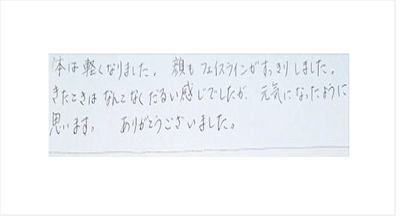 体は軽くなりました。 顔もフェイスラインがすっきりしました。
きたときはなんとなくだるい感じでしたが、元気になったように
思います。 ありがとうございました。